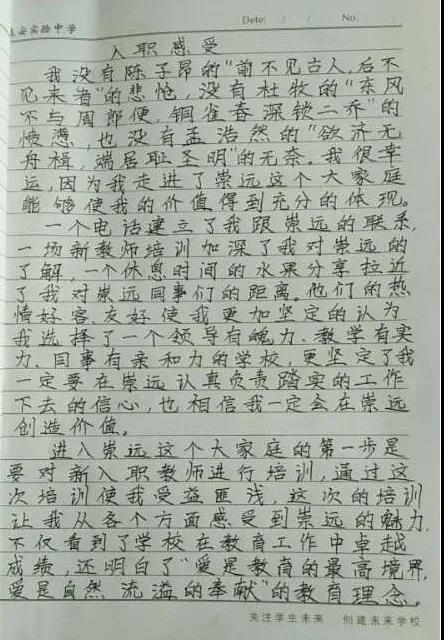 长安实验中学
Date: / / No.
入职感受
我没有陈子昂的“前不见古人,后不
见来者”的悲怆,没有杜牧的“东风
不与周郎便,铜雀春深锁二乔”的
愤懑,也没有孟浩然的“欲济无
舟楫,端居耻圣明”的无奈。我很幸
运,因为我走进了崇远这个大家庭
能够使我的价值得到充分的体现。
一个电话建立了我跟崇远的联系,
一场新教师培训加深了我对崇远的
了解,一个休息时间的水果分享拉近
了我对崇远同事们的距离。他们的热
情好客、友好使我更加坚定的认为
我选择了一个领导有魄力、教学有实
力、同事有亲和力的学校,更坚定了我
一定要在崇远认真负责踏实的工作
下去的信心,也相信我一定会在崇远
创造价值。
进入崇远这个大家庭的第一步是
要对新入职教师进行培训,通过这
次培训使我受益匪浅,这次的培训
让我从各个方面感受到崇远的魅力,
不仅看到了学校在教育工作中卓越
成绩,还明白了“爱是教育的最高境界,
爱是自然流溢的奉献”的教育理念。
关注学生未来 创建未来学校